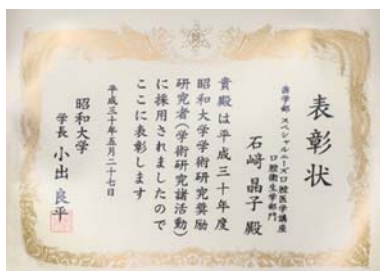 表彰状
歯学部 スペシャルニーズ口腔医学講座
口腔衛生学部門
石﨑 晶子 殿
貴殿は平成三十年度
昭和大学学術研究奨励
研究者(学術研究諸活動)
に採用されましたので
ここに表彰します
平成三十年五月二十七日
昭和大学
学長 小出 良平